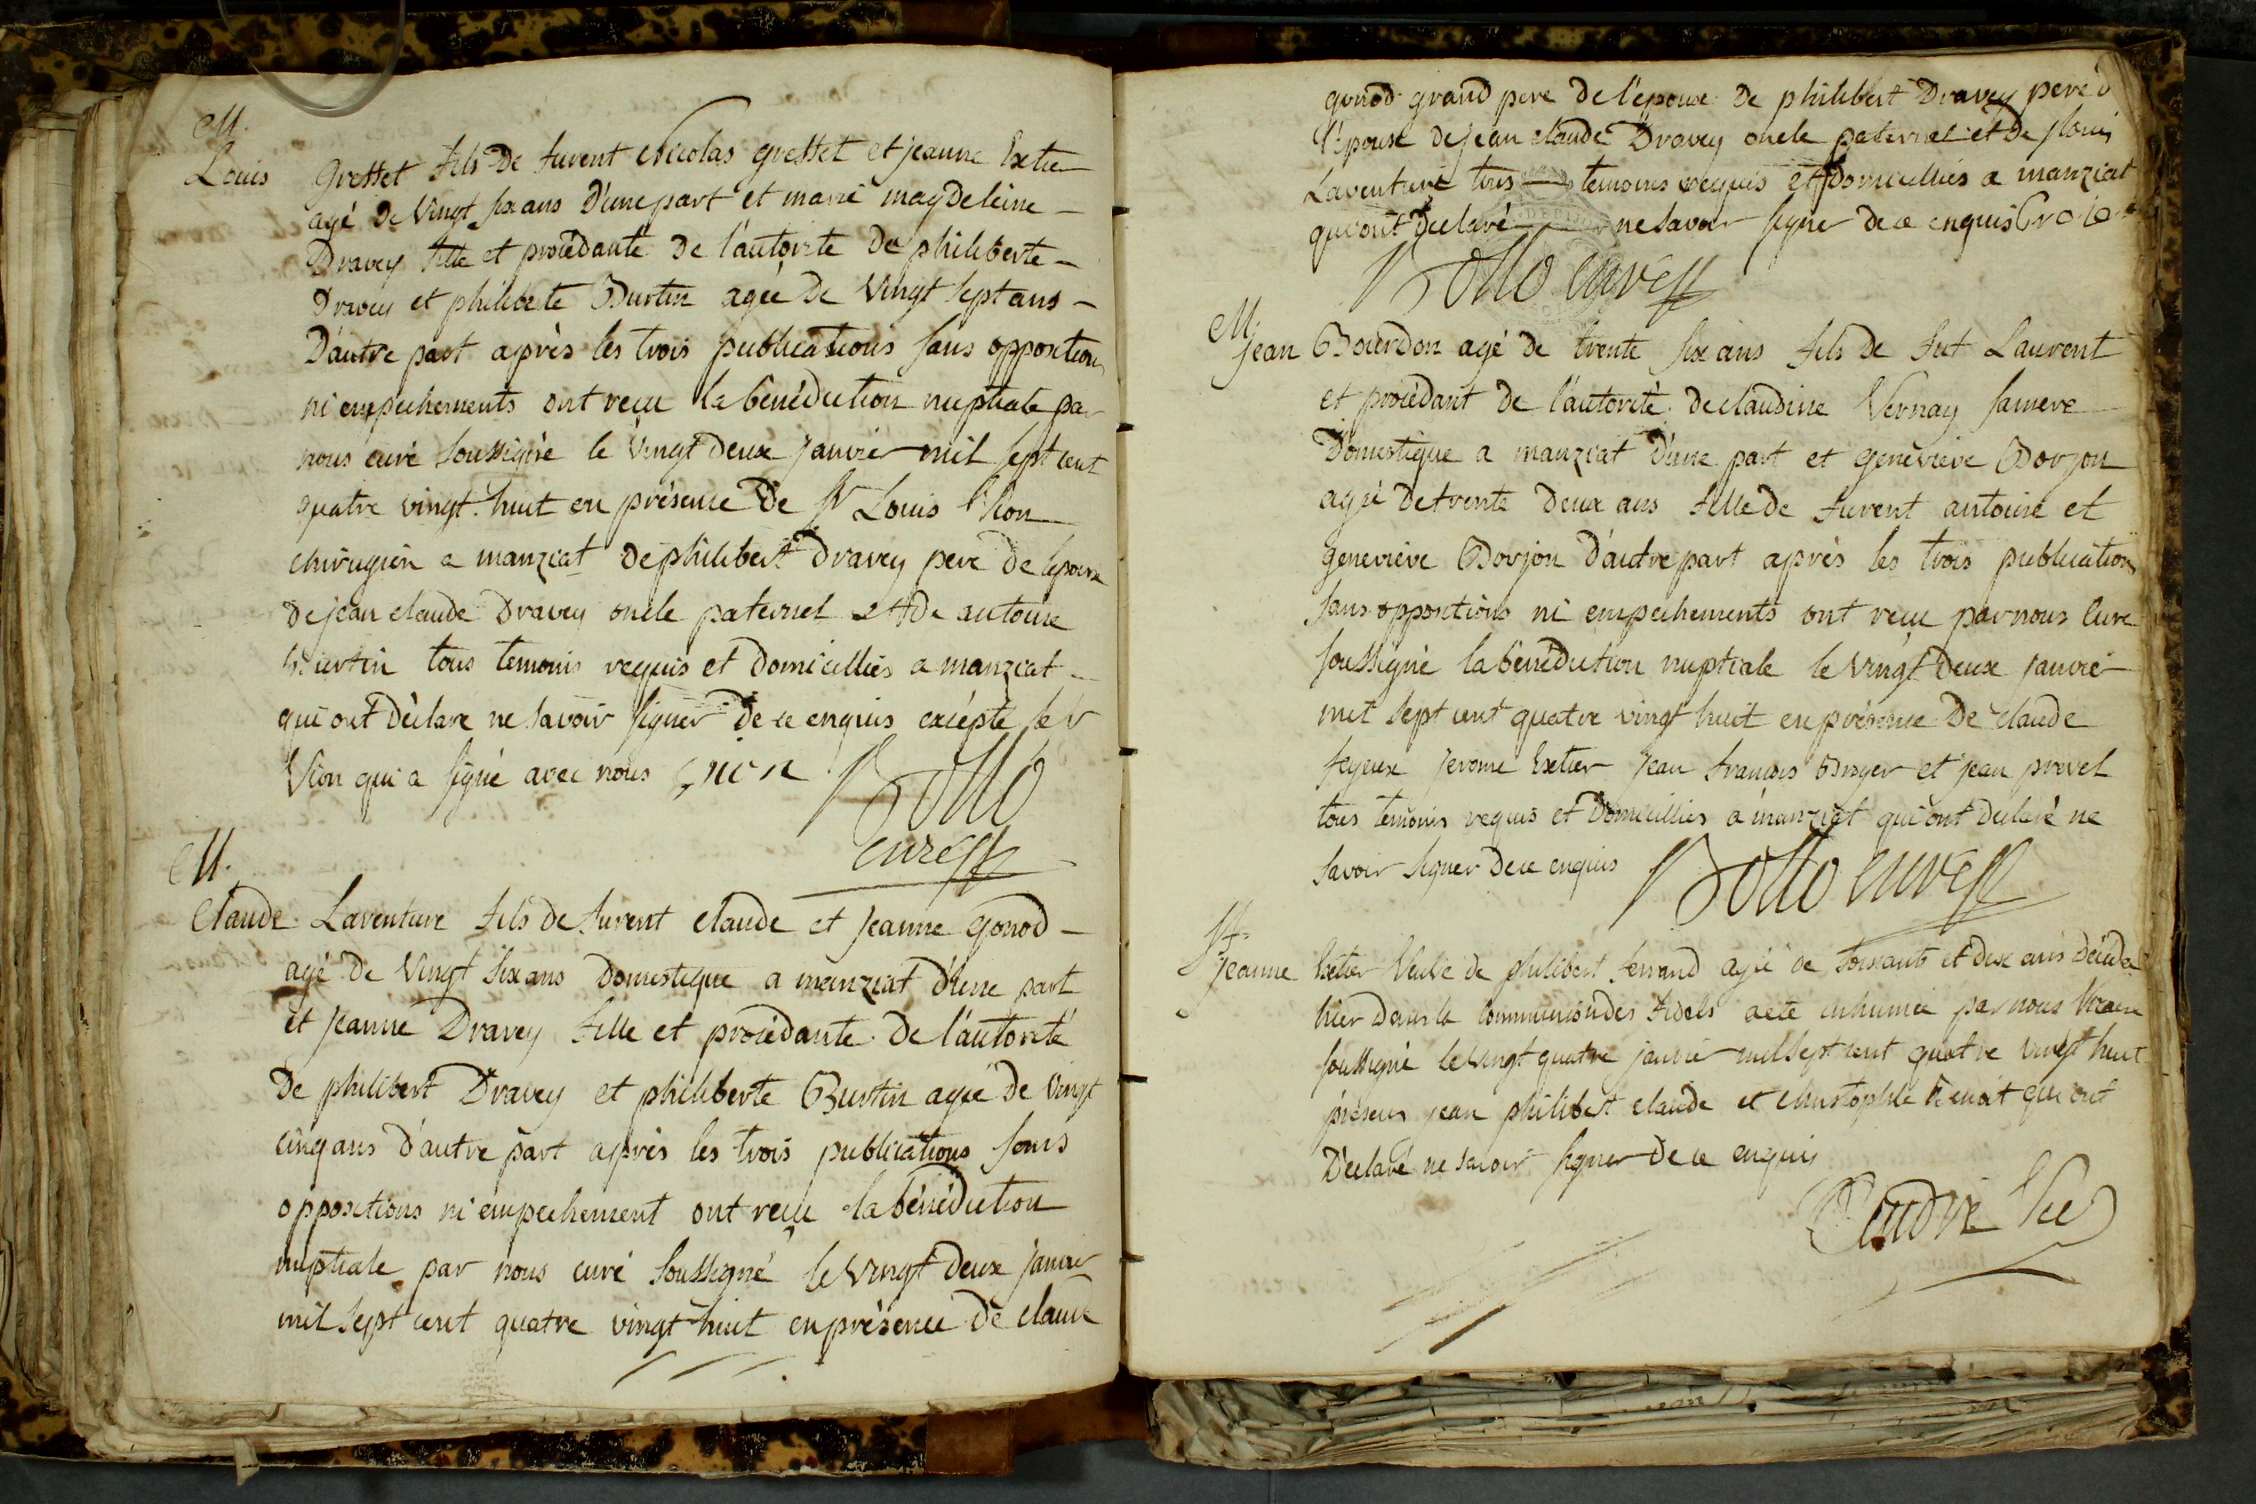 M.
Louis gresset fils de furent nicolas gresset et jeanne Extier
agé de vingt six ans d'une part et marie magdeleine
Dravey fille et procédante de l'autorité de philiberte
Dravey et philiberte Burtin agée de vingt sept ans
D'autre part après les trois publications sans oppositions
ni empechements ont reçu la bénédiction nuptiale par
nous curé soussigné le vingt deux janvier mil sept cent
quatre vingt huit en présence de sr Louis Vion
chirugien a manziat de philibert Dravey pere de lepouse
de jean claude Dravey oncle paternel et de antoine
Burtin tous temoins requis et domicilliés a manziat
qui ont déclaré ne savoir signer de ce enquis excepté se sr
Vion qui a signé avec nous Vion
curé
M.
Claude Laventure fils de furent claude et jeanne gonod
agé de vingt six ans domestique a manziat d'une part
et jeanne Dravey fille et procédante de l'autorité
De philibert Dravey et philiberte Burtin agée de vingt
cinq ans d'autre part après les trois publications sans
oppositions ni empechement ont reçu la bénédiction
nuptiale par nous curé soussigné le vingt deux janvier
mil sept cent quatre vingt huit en présence de claude
gonod grand pere de l'epouse de philibert Dravey pere d
l'épouse de jean claude Dravey oncle paternel et de
Laventure tous temoins requis et domicilliés a manziat
qui ont declaré ne savoir signer de ce enquis
curé
M
jean Bourdon agé de trente six ans fils de fut Laurent
et procédant de l'autorité de claudine Vernay sa mere
Domestique a manziat d'une part et geneviève Dorjon
agée de trente deux ans fille de furent antoine et
geneviève Dorjon d'autre part après les trois publications
sans oppositions ni empechements ont reçu par nous curé
soussigné la bénédiction nuptiale le vingt deux janvier
mil sept cent quatre vingt huit en présence de claude
feyeux jerome Extier jean francois Broyer et jean prevel
tous temoins requis et domicilliés a manziat qui ont declaré ne
savoir signer de ce enquis
curé
Jeanne Extier veuve de philibert ferrand agée de soixante et dix ans décédée
hier dans la communion des fidels a eté inhumée par nous vicaire
soussigné le vingt quatre janvier mil sept cent quatre vingt huit
présens jean philibert claude et christophle Benoit qui ont
Déclaré ne savoir signer de ce enquis